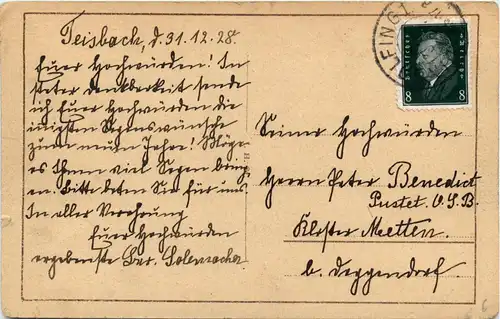 Teisbach, d. 31.12.28.
Euer Hochwürden! In
steter Dankbarkeit sende
ich Euer Hochwürden die
innigsten Segenswünsche
zum neuen Jahre! Möge
es Ihnen viel Segen bring-
en. Bitte beten Sie für uns.
In aller Verehrung
Euer Hochwürden
ergebenste Bar.
DEUTSCHES REICH
8 8
Seiner Hochwürden
Herrn Pater Benedict
Pustet O.S.B.
Kloster Metten
b. Deggendorf